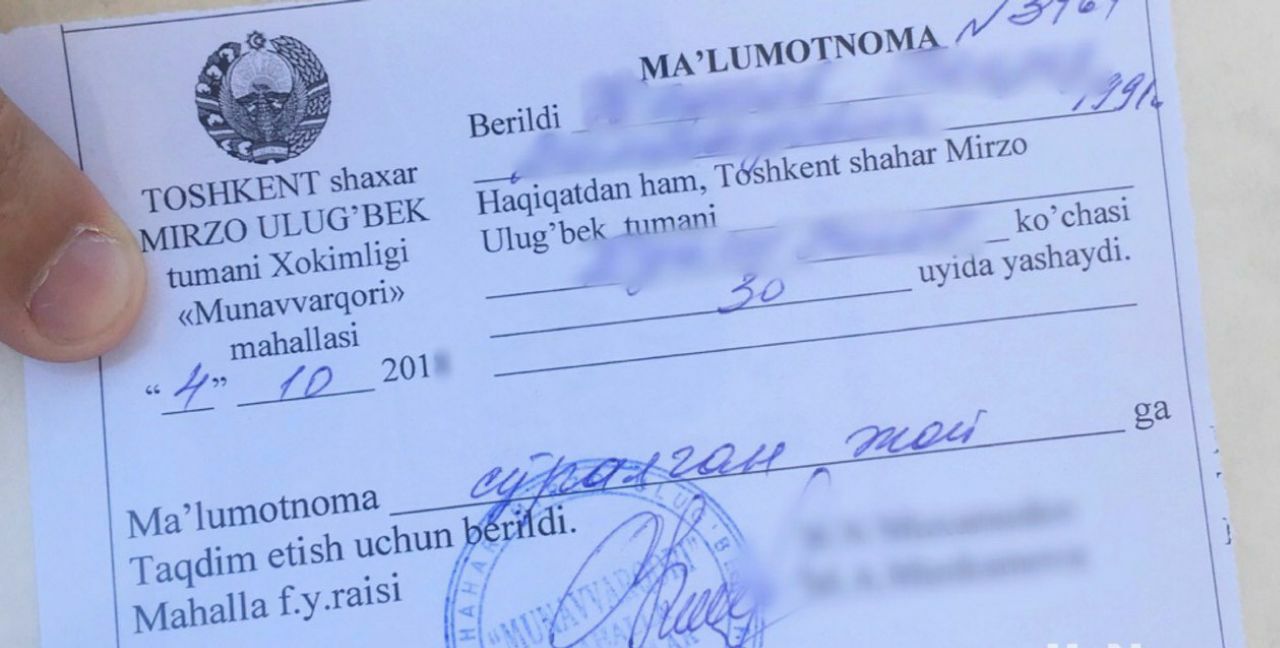 MA'LUMOTNOMA №
Berildi
1991
Haqiqatdan ham, Toshkent shahar Mirzo
Ulug'bek tumani
ko'chasi
30 uyida yashaydi.
TOSHKENT shaxar
MIRZO ULUG'BEK
tumani Xokimligi
«Munavvarqori»
mahallasi
“4” 10 201
Ma'lumotnoma сўралган жой ga
Taqdim etish uchun berildi.
Mahalla f.y.raisi
"MUNAVVARQORI"